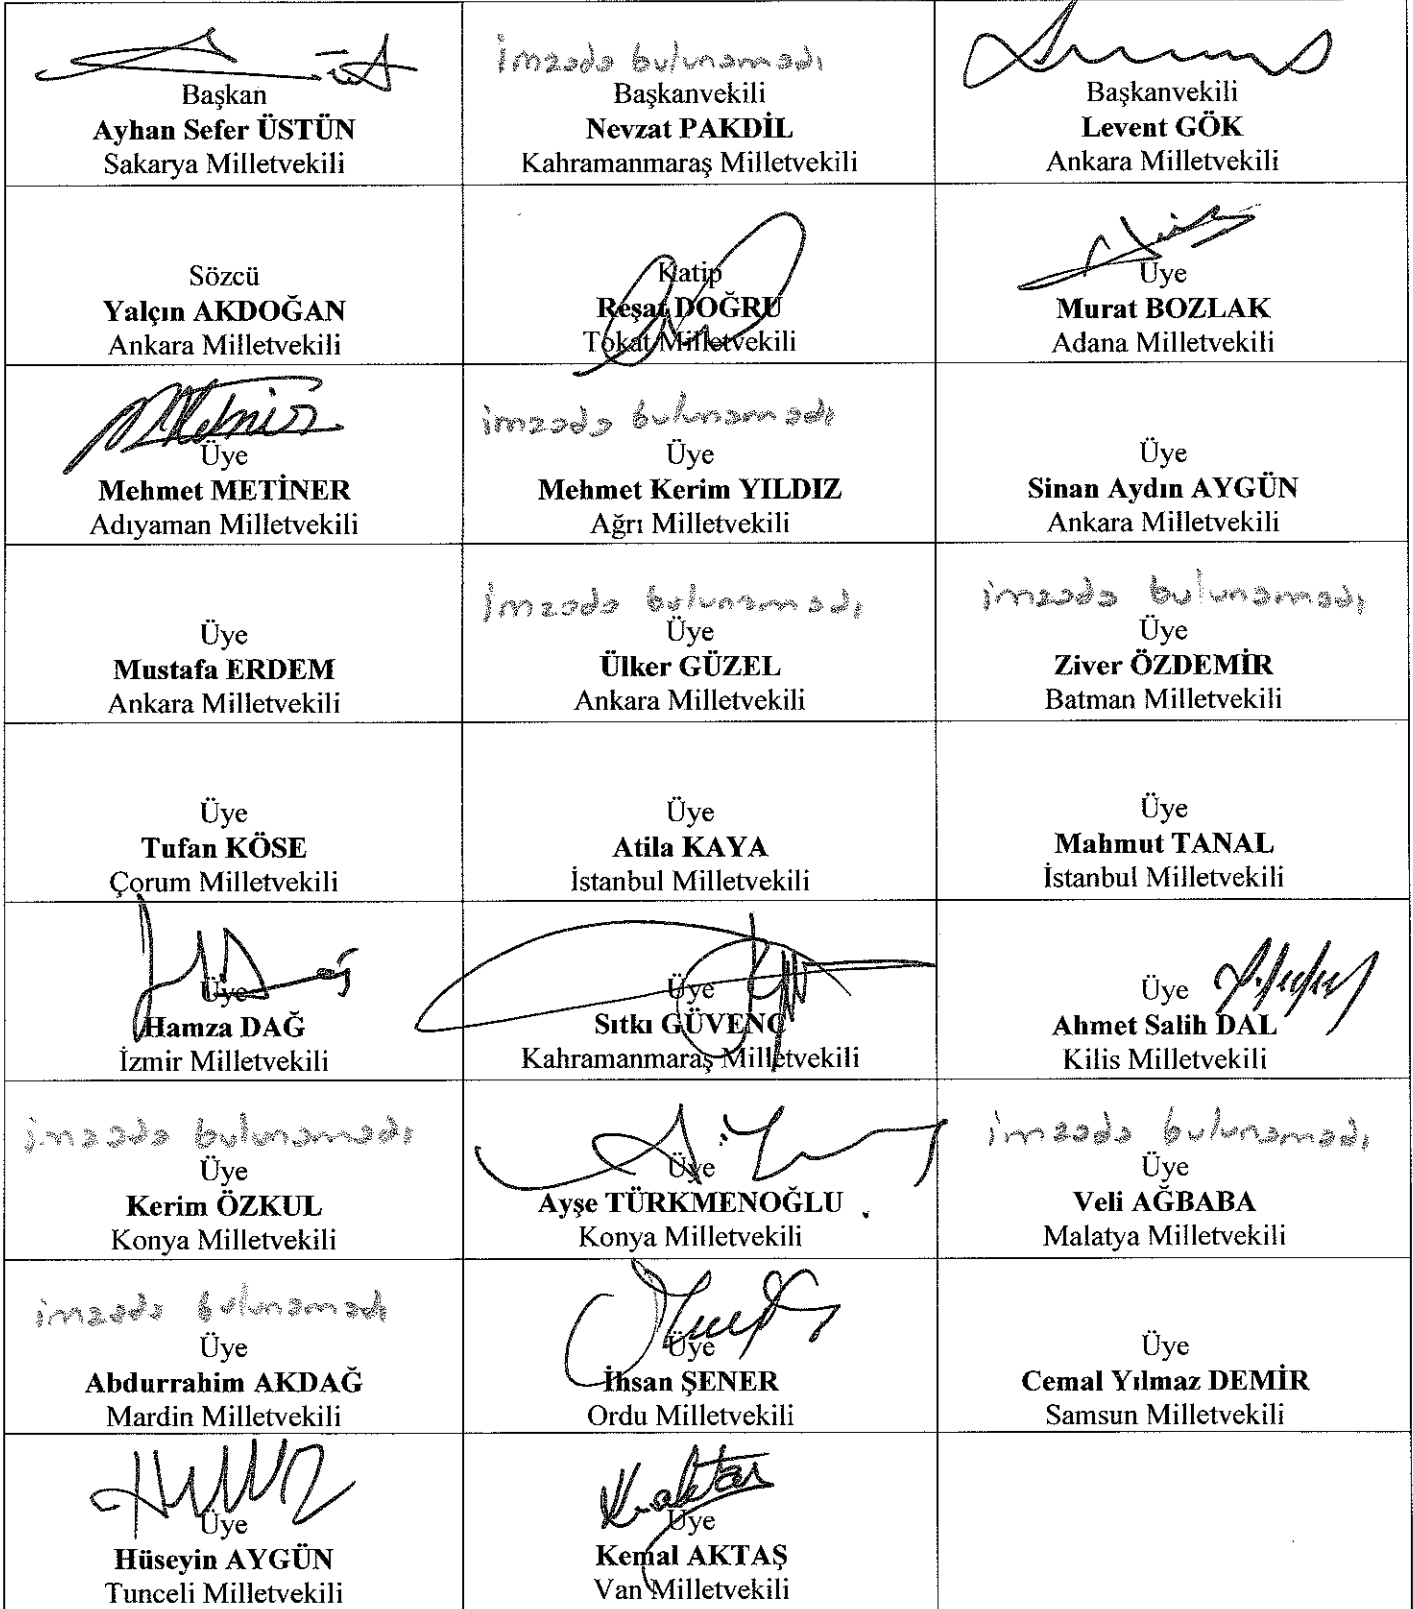 imzada bulunamadı
Başkan
Ayhan Sefer ÜSTÜN
Sakarya Milletvekili
Başkanvekili
Nevzat PAKDİL
Kahramanmaraş Milletvekili
Başkanvekili
Levent GÖK
Ankara Milletvekili
Sözcü
Yalçın AKDOĞAN
Ankara Milletvekili
Katip
Reşat DOĞRU
Tokat Milletvekili
Üye
Murat BOZLAK
Adana Milletvekili
Üye
Mehmet METİNER
Adıyaman Milletvekili
imzada bulunamadı
Üye
Mehmet Kerim YILDIZ
Ağrı Milletvekili
Üye
Sinan Aydın AYGÜN
Ankara Milletvekili
Üye
Mustafa ERDEM
Ankara Milletvekili
imzada bulunamadı
Üye
Ülker GÜZEL
Ankara Milletvekili
imzada bulunamadı
Üye
Ziver ÖZDEMİR
Batman Milletvekili
Üye
Tufan KÖSE
Çorum Milletvekili
Üye
Atila KAYA
İstanbul Milletvekili
Üye
Mahmut TANAL
İstanbul Milletvekili
Üye
Hamza DAĞ
İzmir Milletvekili
Üye
Sıtkı GÜVENÇ
Kahramanmaraş Milletvekili
Üye
Ahmet Salih DAL
Kilis Milletvekili
imzada bulunamadı
Üye
Kerim ÖZKUL
Konya Milletvekili
Üye
Ayşe TÜRKMENOĞLU
Konya Milletvekili
imzada bulunamadı
Üye
Veli AĞBABA
Malatya Milletvekili
imzada bulunamadı
Üye
Abdurrahim AKDAĞ
Mardin Milletvekili
Üye
İhsan ŞENER
Ordu Milletvekili
Üye
Cemal Yılmaz DEMİR
Samsun Milletvekili
Üye
Hüseyin AYGÜN
Tunceli Milletvekili
Üye
Kemal AKTAŞ
Van Milletvekili